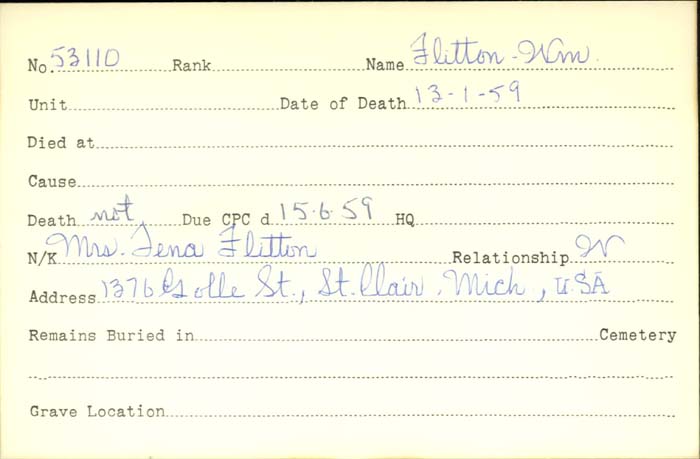 No. 53110 Rank Name Flitton - Wm.
Unit Date of Death 13-1-59
Died at
Cause
Death not Due CPC d 15-6-59 HQ
N/K Mrs. Tena Flitton Relationship W
Address 1376 St., St. Clair, Mich, USA
Remains Buried in Cemetery
Grave Location